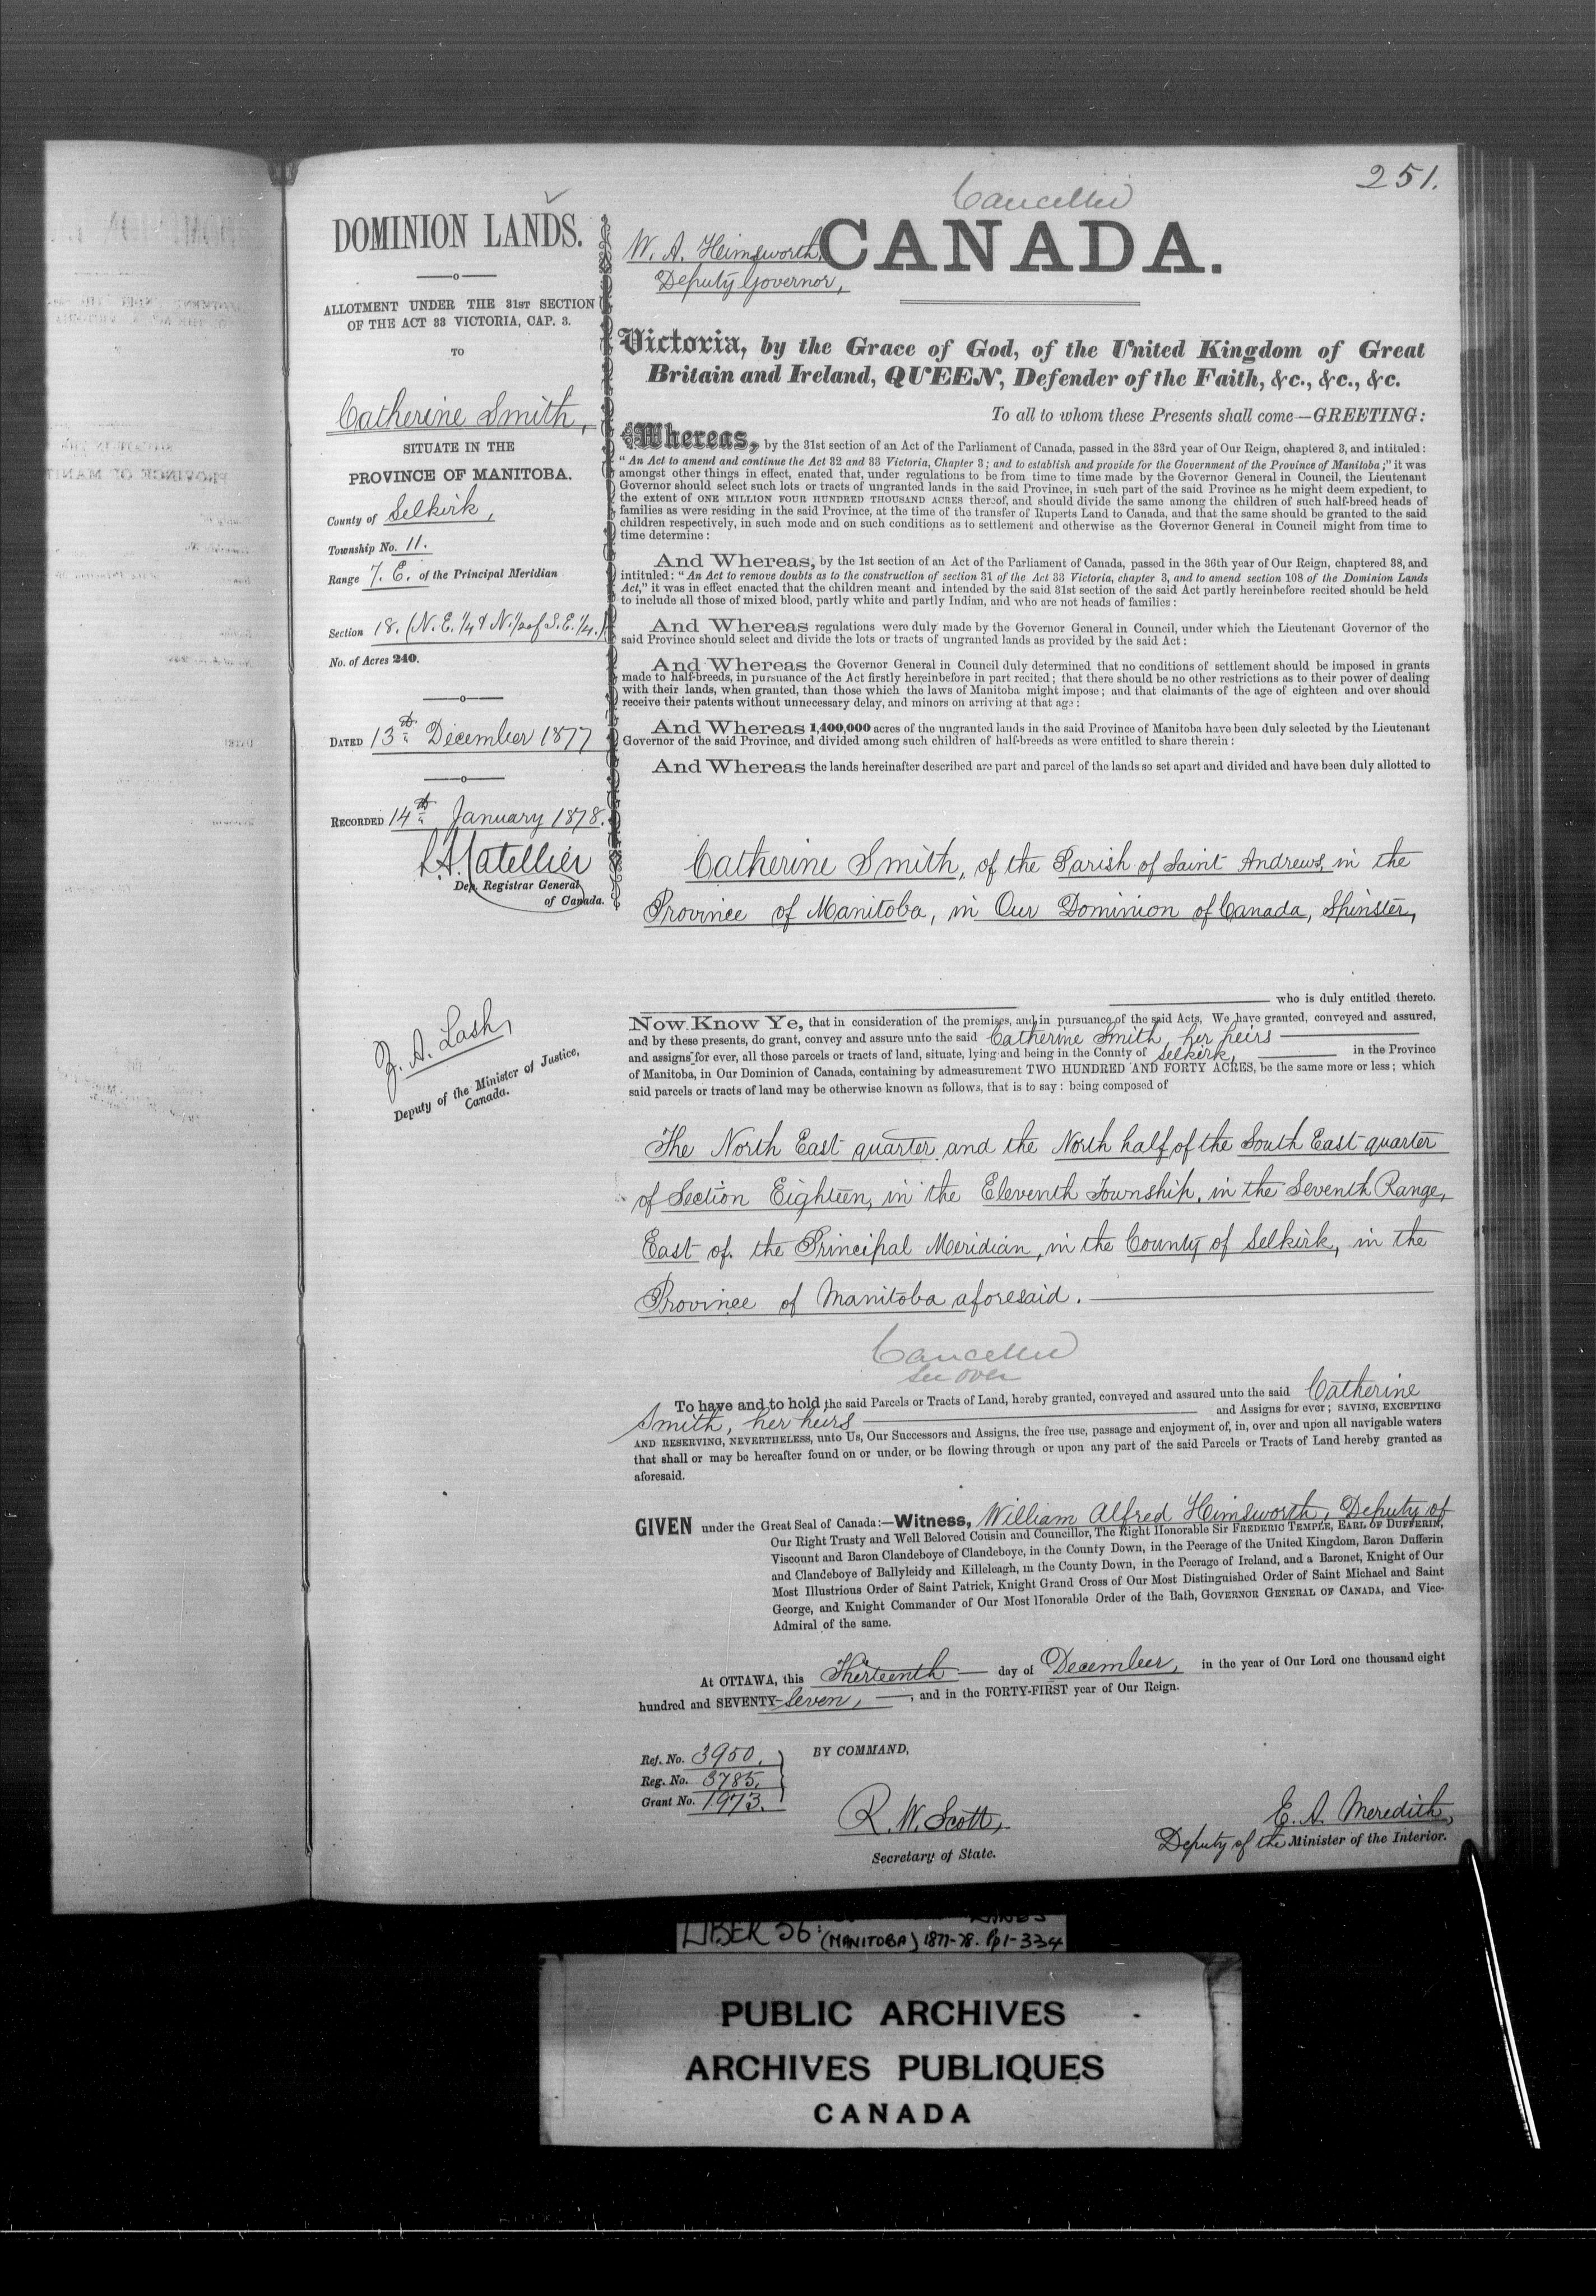 251.
Cancelled
DOMINION LANDS.
ALLOTMENT UNDER THE 31ST SECTION
OF THE ACT 33 VICTORIA, CAP. 3.
TO
Catherine Smith,
SITUATE IN THE
PROVINCE OF MANITOBA.
County of Selkirk,
Township No. 11.
Range 7. E. of the Principal Meridian
Section 18. (N.E. 1/4 & N. 1/2 of S.E. 1/4.)
No. of Acres 240.
DATED 13th December 1877
RECORDED 14th January 1878.
L.A. Catellier
Dep. Registrar General
of Canada.
Z. A. Lash,
Deputy of the Minister of Justice,
Canada.
W. A. Himsworth,
Deputy Governor,
CANADA.
Victoria, by the Grace of God, of the United Kingdom of Great
Britain and Ireland, QUEEN, Defender of the Faith, &c., &c., &c.
To all to whom these Presents shall come—GREETING:
Whereas, by the 31st section of an Act of the Parliament of Canada, passed in the 33rd year of Our Reign, chaptered 3, and intituled:
"An Act to amend and continue the Act 32 and 33 Victoria, Chapter 3; and to establish and provide for the Government of the Province of Manitoba;" it was
amongst other things in effect, enated that, under regulations to be from time to time made by the Governor General in Council, the Lieutenant
Governor should select such lots or tracts of ungranted lands in the said Province, in such part of the said Province as he might deem expedient, to
the extent of ONE MILLION FOUR HUNDRED THOUSAND ACRES thereof, and should divide the same among the children of such half-breed heads of
families as were residing in the said Province, at the time of the transfer of Ruperts Land to Canada, and that the same should be granted to the said
children respectively, in such mode and on such conditions as to settlement and otherwise as the Governor General in Council might from time to
time determine:
And Whereas, by the 1st section of an Act of the Parliament of Canada, passed in the 36th year of Our Reign, chaptered 38, and
intituled: "An Act to remove doubts as to the construction of section 31 of the Act 33 Victoria, chapter 3, and to amend section 108 of the Dominion Lands
Act," it was in effect enacted that the children meant and intended by the said 31st section of the said Act partly hereinbefore recited should be held
to include all those of mixed blood, partly white and partly Indian, and who are not heads of families:
And Whereas regulations were duly made by the Governor General in Council, under which the Lieutenant Governor of the
said Province should select and divide the lots or tracts of ungranted lands as provided by the said Act:
And Whereas the Governor General in Council duly determined that no conditions of settlement should be imposed in grants
made to half-breeds, in pursuance of the Act firstly hereinbefore in part recited; that there should be no other restrictions as to their power of dealing
with their lands, when granted, than those which the laws of Manitoba might impose; and that claimants of the age of eighteen and over should
receive their patents without unnecessary delay, and minors on arriving at that age:
And Whereas 1,400,000 acres of the ungranted lands in the said Province of Manitoba have been duly selected by the Lieutenant
Governor of the said Province, and divided among such children of half-breeds as were entitled to share therein:
And Whereas the lands hereinafter described are part and parcel of the lands so set apart and divided and have been duly allotted to
Catherine Smith, of the Parish of Saint Andrews, in the
Province of Manitoba, in Our Dominion of Canada, Spinster,
who is duly entitled thereto.
Now Know Ye, that in consideration of the premises, and in pursuance of the said Acts, We have granted, conveyed and assured,
and by these presents, do grant, convey and assure unto the said Catherine Smith, her heirs
and assigns for ever, all those parcels or tracts of land, situate, lying and being in the County of Selkirk, in the Province
of Manitoba, in Our Dominion of Canada, containing by admeasurement TWO HUNDRED AND FORTY ACRES, be the same more or less; which
said parcels or tracts of land may be otherwise known as follows, that is to say: being composed of
The North East quarter and the North half of the South East quarter
of Section Eighteen, in the Eleventh Township, in the Seventh Range,
East of the Principal Meridian, in the County of Selkirk, in the
Province of Manitoba aforesaid.
Cancelled
See over
To have and to hold the said Parcels or Tracts of Land, hereby granted, conveyed and assured unto the said Catherine
Smith, her heirs and Assigns for ever; SAVING, EXCEPTING
AND RESERVING, NEVERTHELESS, unto Us, Our Successors and Assigns, the free use, passage and enjoyment of, in, over and upon all navigable waters
that shall or may be hereafter found on or under, or be flowing through or upon any part of the said Parcels or Tracts of Land hereby granted as
aforesaid.
GIVEN under the Great Seal of Canada:—Witness, William Alfred Himsworth, Deputy of
Our Right Trusty and Well Beloved Cousin and Councillor, The Right Honorable Sir FREDERIC TEMPLE, EARL OF DUFFERIN,
Viscount and Baron Clandeboye of Clandeboye, in the County Down, in the Peerage of the United Kingdom, Baron Dufferin
and Clandeboye of Ballyleidy and Killeleagh, in the County Down, in the Peerage of Ireland, and a Baronet, Knight of Our
Most Illustrious Order of Saint Patrick, Knight Grand Cross of Our Most Distinguished Order of Saint Michael and Saint
George, and Knight Commander of Our Most Honorable Order of the Bath, GOVERNOR GENERAL OF CANADA, and Vice-
Admiral of the same.
At OTTAWA, this Thirteenth day of December, in the year of Our Lord one thousand eight
hundred and SEVENTY-Seven, and in the FORTY-FIRST year of Our Reign.
Ref. No. 3950.
Reg. No. 3785.
Grant No. 1973.
BY COMMAND,
R. W. Scott,
Secretary of State.
E. A. Meredith,
Deputy of the Minister of the Interior.
LIBER 56: LANDS
(MANITOBA) 1877-78. Pp 1-334
PUBLIC ARCHIVES
ARCHIVES PUBLIQUES
CANADA